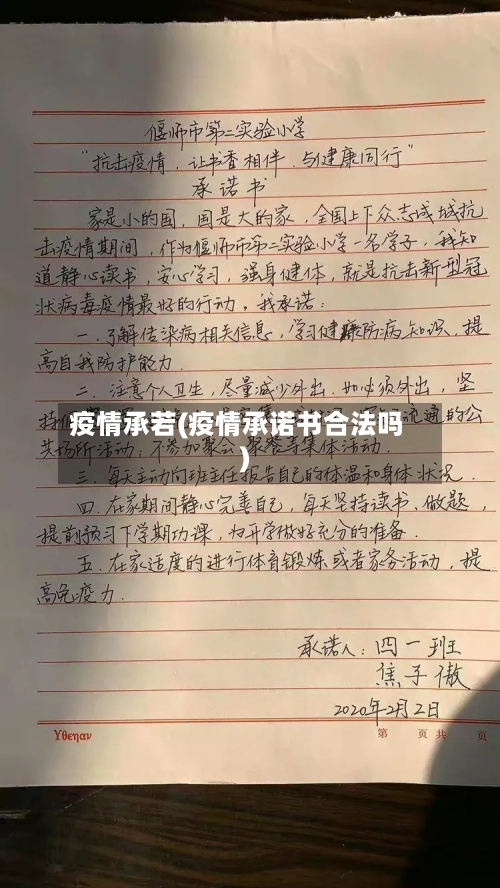 偃师市第二实验小学
“抗击疫情，让书香相伴，与健康同行”
承诺书
家是小的国，国是大的家，全国上下众志成城抗
击疫情期间，作为偃师市第二实验小学一名学子，我知
道静心读书，安心学习，强身健体，就是抗击新型冠
状病毒疫情最好的行动。我承诺：
一.了解传染病相关信息，学习健康防病知识，提
高自我防护能力.
二.注意个人卫生，尽量减少外出.如必须外出，坚
持
流通的公
疫情承若(疫情承诺书合法吗
)
共场所活动；不参加聚会、聚餐等集体活动.
三.每天主动向班主任报告自己的体温和身体状况.
四.在家期间静心完善自己，每天坚持读书、做题，
提前预习下学期功课，为开学做好充分的准备.
五.在家适度的进行体育锻炼或者家务活动，提
高免疫力.
承诺人：四一班
焦子傲
2020年2月2日
Yθeηαν
第 页 共 页